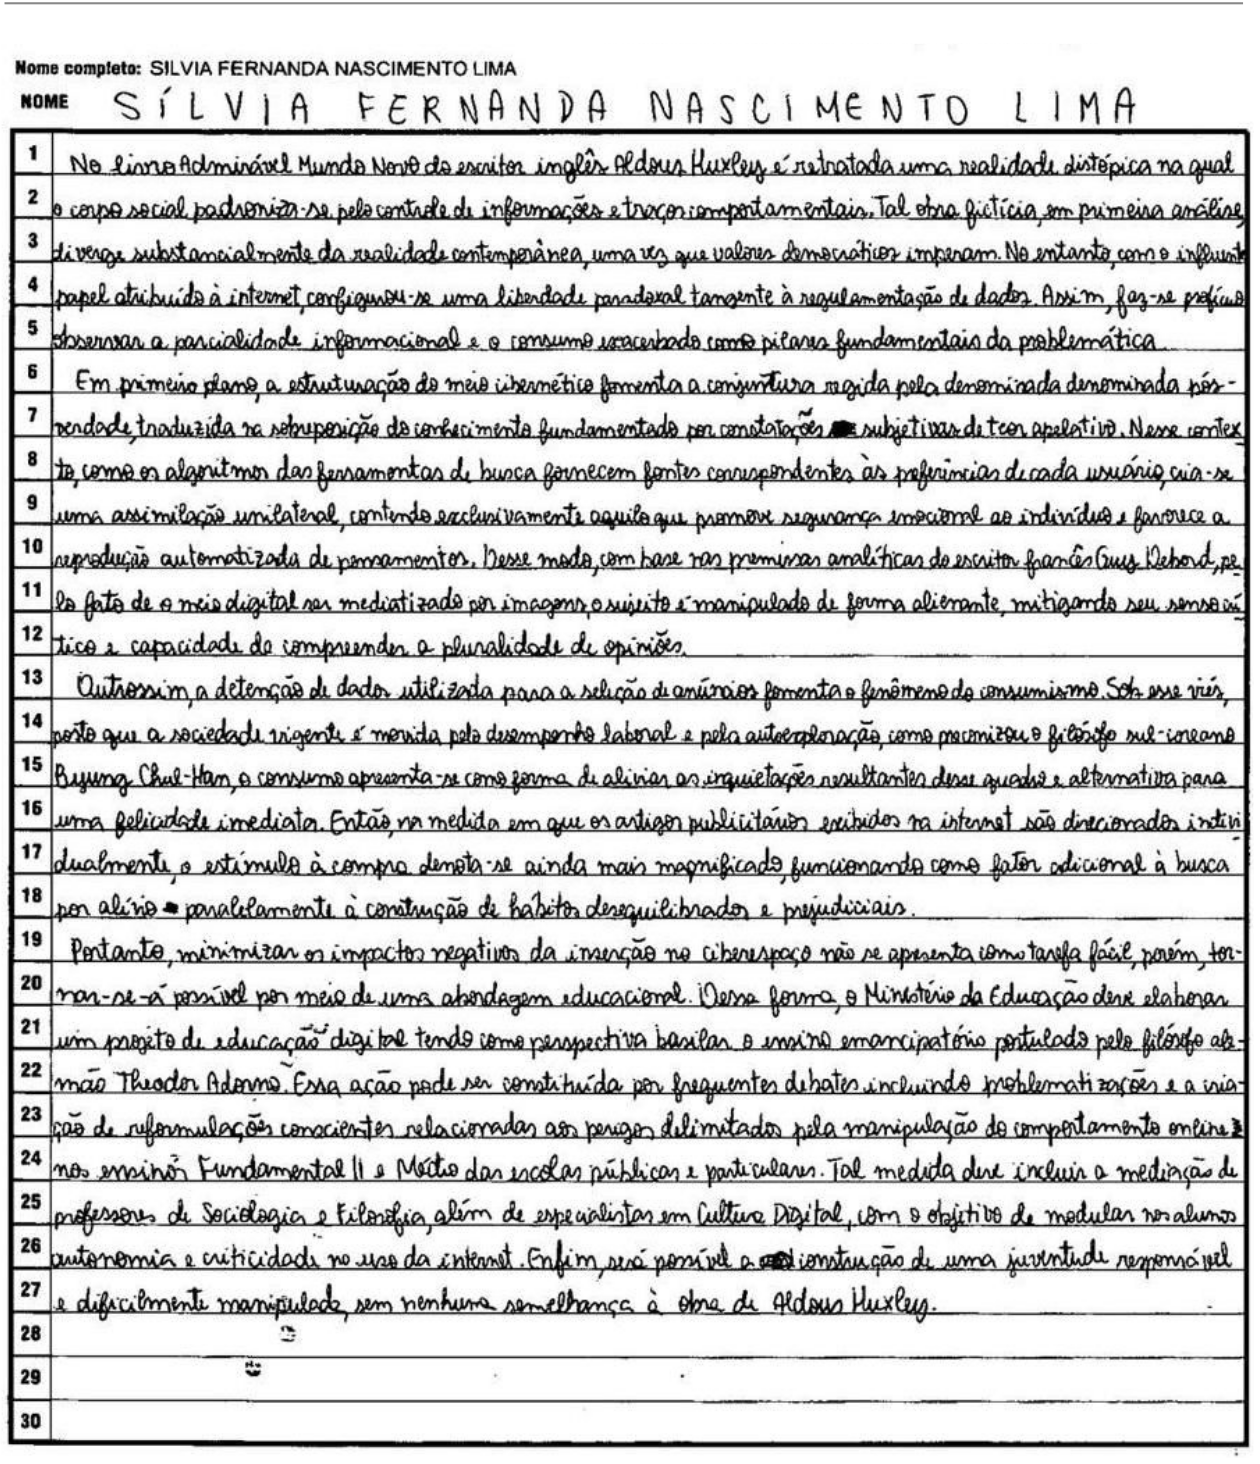 Nome completo: SILVIA FERNANDA NASCIMENTO LIMA
NOME SÍLVIA FERNANDA NASCIMENTO LIMA
1 No livro Admirável Mundo Novo do escritor inglês Aldous Huxley é retratada uma realidade distópica na qual
2 o corpo social padroniza-se pelo controle de informações e traços comportamentais. Tal obra fictícia, em primeira análise,
3 diverge substancialmente da realidade contemporânea, uma vez que valores democráticos imperam. No entanto, com o influente
4 papel atribuído à internet, configurou-se uma liberdade paradoxal tangente à regulamentação de dados. Assim, faz-se profícuo
5 observar a parcialidade informacional e o consumo exacerbado como pilares fundamentais da problemática.
6 Em primeiro plano, a estruturação do meio cibernético fomenta a conjuntura regida pela denominada denominada pós-
7 verdade, traduzida na sobreposição do conhecimento fundamentado por constatações subjetivas de teor apelativo. Nesse contex
8 to, como os algoritmos das ferramentas de busca fornecem fontes correspondentes às preferências de cada usuário, cria-se
9 uma assimilação unilateral, contendo exclusivamente aquilo que promove segurança emocional ao indivíduo e favorece a
10 reprodução automatizada de pensamentos. Desse modo, com base nas premissas analíticas do escritor francês Guy Debord, pe
11 lo fato de o meio digital ser mediatizado por imagens, o sujeito é manipulado de forma alienante, mitigando seu senso crí
12 tico e capacidade de compreender a pluralidade de opiniões.
13 Outrossim, a detenção de dados utilizada para a seleção de anúncios fomenta o fenômeno do consumismo. Sob esse viés,
14 posto que a sociedade vigente é movida pelo desempenho laboral e pela autoexploração, como preconizou o filósofo sul-coreano
15 Byung Chul-Han, o consumo apresenta-se como forma de aliviar as inquietações resultantes desse quadro e alternativa para
16 uma felicidade imediata. Então, na medida em que os artigos publicitários exibidos na internet são direcionados indivi
17 dualmente, o estímulo à compra denota-se ainda mais magnificado, funcionando como fator adicional à busca
18 por alívio paralelamente à construção de hábitos desequilibrados e prejudiciais.
19 Portanto, minimizar os impactos negativos da inserção no ciberespaço não se apresenta como tarefa fácil, porém, tor-
20 nar-se-á possível por meio de uma abordagem educacional. Dessa forma, o Ministério da Educação deve elaborar
21 um projeto de educação digital tendo como perspectiva basilar o ensino emancipatório postulado pelo filósofo ale-
22 mão Theodor Adorno. Essa ação pode ser constituída por frequentes debates, incluindo problematizações e a cria-
23 ção de reformulações conscientes relacionadas aos perigos delimitados pela manipulação do comportamento online
24 nos ensinos Fundamental II e Médio das escolas públicas e particulares. Tal medida deve incluir a mediação de
25 professores de Sociologia e Filosofia, além de especialistas em Cultura Digital, com o objetivo de modular nos alunos
26 autonomia e criticidade no uso da internet. Enfim, será possível a construção de uma juventude responsável
27 e dificilmente manipulada, sem nenhuma semelhança à obra de Aldous Huxley.
28
29
30